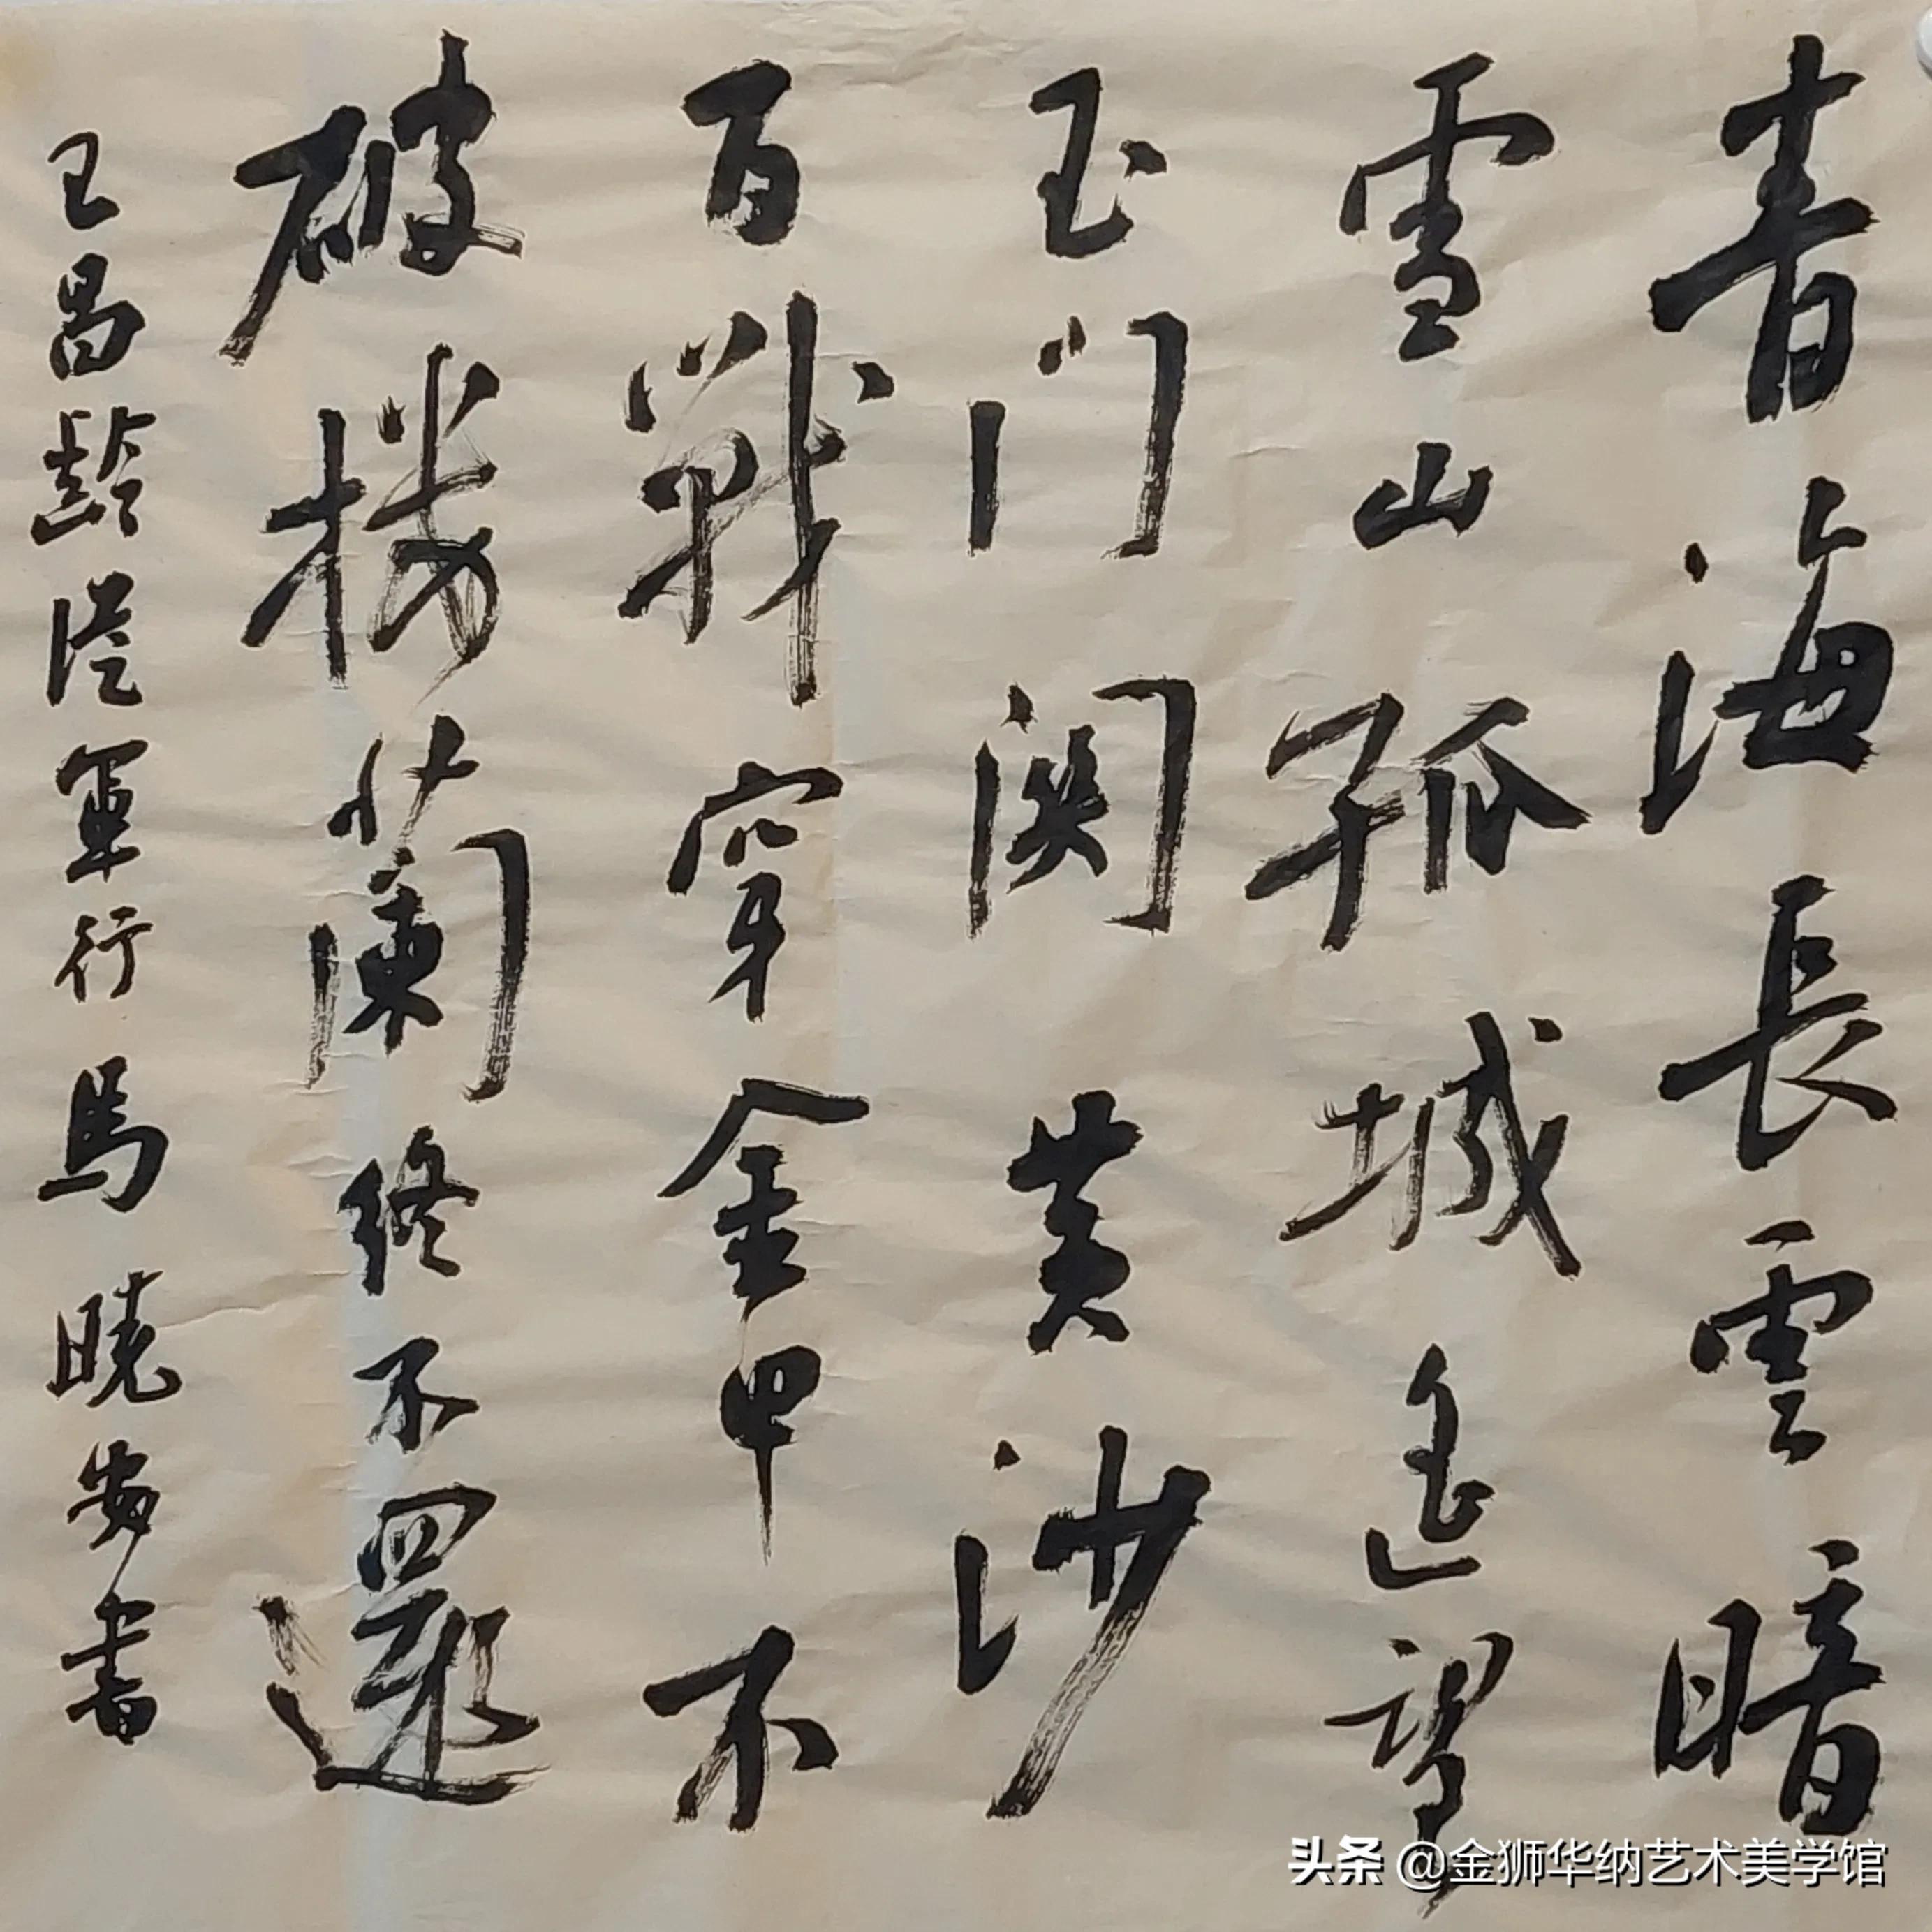 青海長雲暗
雪山孤城遥望
玉门関黄沙
百戰穿金甲不
破楼蘭终不還
王昌龄從軍行馬曉安書
头条 @金狮华纳艺术美学馆